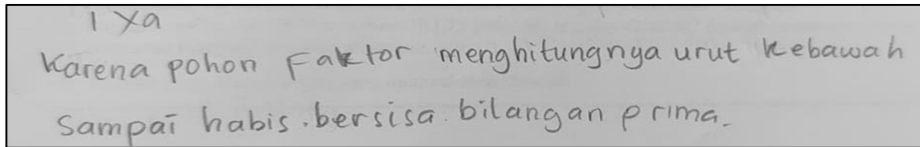 1 Ya
Karena pohon Faktor menghitungnya urut kebawah
Sampai habis.bersisa.bilangan prima.